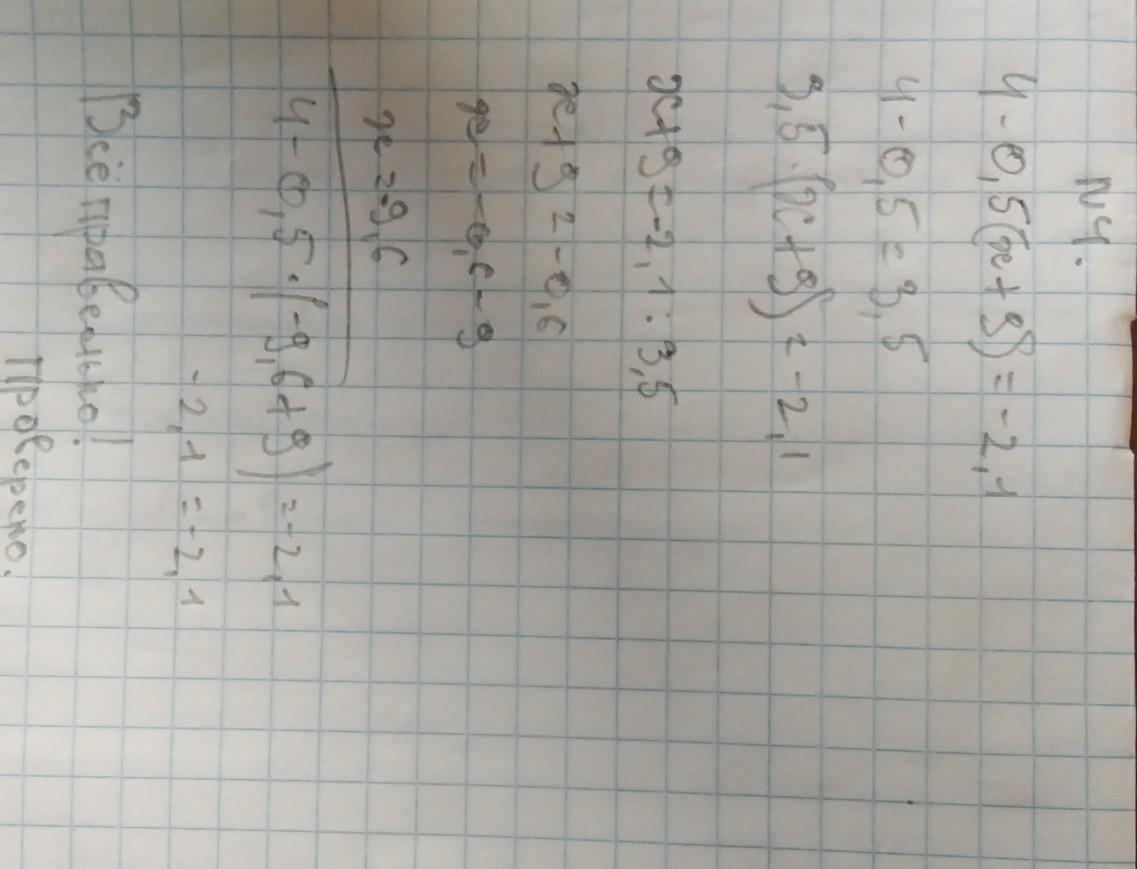 №4.
4 - 0,5(x + 9) = -2,1
4 - 0,5 = 3,5
3,5 · (x + 9) = -2,1
x + 9 = -2,1 : 3,5
x + 9 = -0,6
x = -0,6 - 9
x = -9,6
4 - 0,5 · (-9,6 + 9) = -2,1
-2,1 = -2,1
Всё правельно!
Проверено.